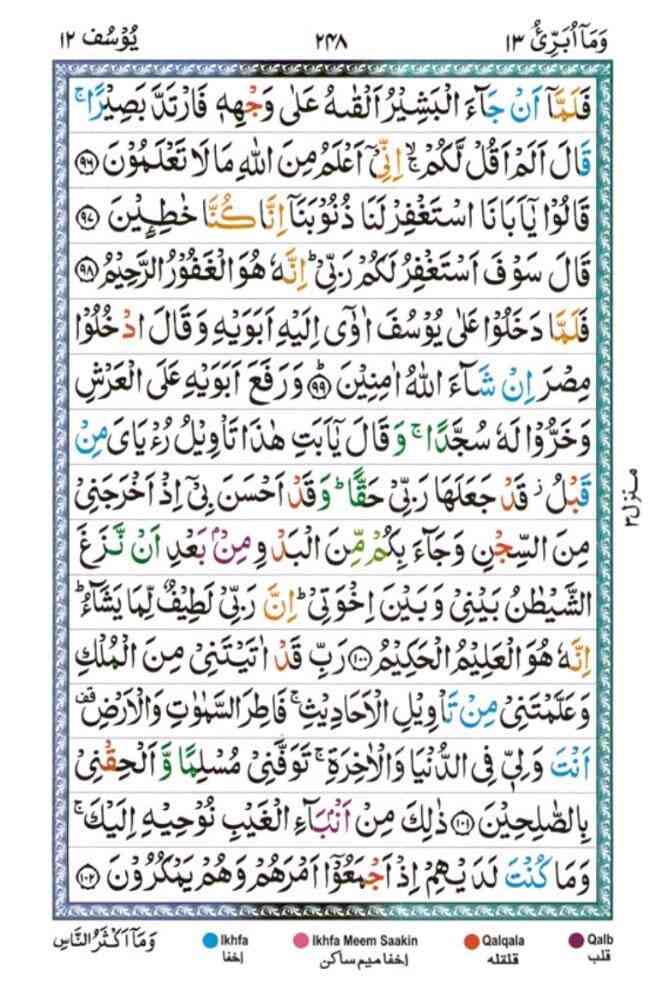 وَمَاۤ اُبَرِّئُ ١٣ ٢٤٨ يُوْسُف ١٢
فَلَمَّاۤ اَنْ جَآءَ الْبَشِيْرُ اَلْقٰىهُ عَلٰى وَجْهِهٖ فَارْتَدَّ بَصِيْرًا ۚ
قَالَ اَلَمْ اَقُلْ لَّكُمْ ۙۚ اِنِّيْۤ اَعْلَمُ مِنَ اللّٰهِ مَا لَا تَعْلَمُوْنَ ﴿٩٦﴾
قَالُوْا يٰۤاَبَانَا اسْتَغْفِرْ لَنَا ذُنُوْبَنَاۤ اِنَّا كُنَّا خٰطِـِٕيْنَ ﴿٩٧﴾
قَالَ سَوْفَ اَسْتَغْفِرُ لَكُمْ رَبِّيْ ؕ اِنَّهٗ هُوَ الْغَفُوْرُ الرَّحِيْمُ ﴿٩٨﴾
فَلَمَّا دَخَلُوْا عَلٰى يُوْسُفَ اٰوٰۤى اِلَيْهِ اَبَوَيْهِ وَقَالَ ادْخُلُوْا
مِصْرَ اِنْ شَآءَ اللّٰهُ اٰمِنِيْنَ ﴿٩٩﴾ؕ وَرَفَعَ اَبَوَيْهِ عَلَى الْعَرْشِ
وَخَرُّوْا لَهٗ سُجَّدًا ۚ وَقَالَ يٰۤاَبَتِ هٰذَا تَاْوِيْلُ رُءْيَايَ مِنْ
قَبْلُ ؗ قَدْ جَعَلَهَا رَبِّيْ حَقًّا ؕ وَقَدْ اَحْسَنَ بِيْۤ اِذْ اَخْرَجَنِيْ
مِنَ السِّجْنِ وَجَآءَ بِكُمْ مِّنَ الْبَدْوِ مِنْۢ بَعْدِ اَنْ نَّزَغَ
الشَّيْطٰنُ بَيْنِيْ وَبَيْنَ اِخْوَتِيْ ؕ اِنَّ رَبِّيْ لَطِيْفٌ لِّمَا يَشَآءُ ؕ
اِنَّهٗ هُوَ الْعَلِيْمُ الْحَكِيْمُ ﴿١٠٠﴾ رَبِّ قَدْ اٰتَيْتَنِيْ مِنَ الْمُلْكِ
وَعَلَّمْتَنِيْ مِنْ تَاْوِيْلِ الْاَحَادِيْثِ ۚ فَاطِرَ السَّمٰوٰتِ وَالْاَرْضِ قف
اَنْتَ وَلِيّٖ فِي الدُّنْيَا وَالْاٰخِرَةِ ۚ تَوَفَّنِيْ مُسْلِمًا وَّاَلْحِقْنِيْ
بِالصّٰلِحِيْنَ ﴿١٠١﴾ ذٰلِكَ مِنْ اَنْۢبَآءِ الْغَيْبِ نُوْحِيْهِ اِلَيْكَ ۚ
وَمَا كُنْتَ لَدَيْهِمْ اِذْ اَجْمَعُوْۤا اَمْرَهُمْ وَهُمْ يَمْكُرُوْنَ ﴿١٠٢﴾
منزل ٣
وَمَاۤ اَكْثَرُ النَّاسِ
Ikhfa
اِخفا
Ikhfa Meem Saakin
اِخفا میم ساکن
Qalqala
قلقله
Qalb
قلب